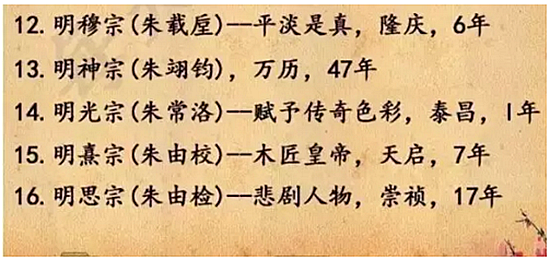 12. 明穆宗(朱载垕)--平淡是真，隆庆，6年
13. 明神宗(朱翊钧)，万历，47年
14. 明光宗(朱常洛)--赋予传奇色彩，泰昌，1年
15. 明熹宗(朱由校)--木匠皇帝，天启，7年
16. 明思宗(朱由检)--悲剧人物，崇祯，17年